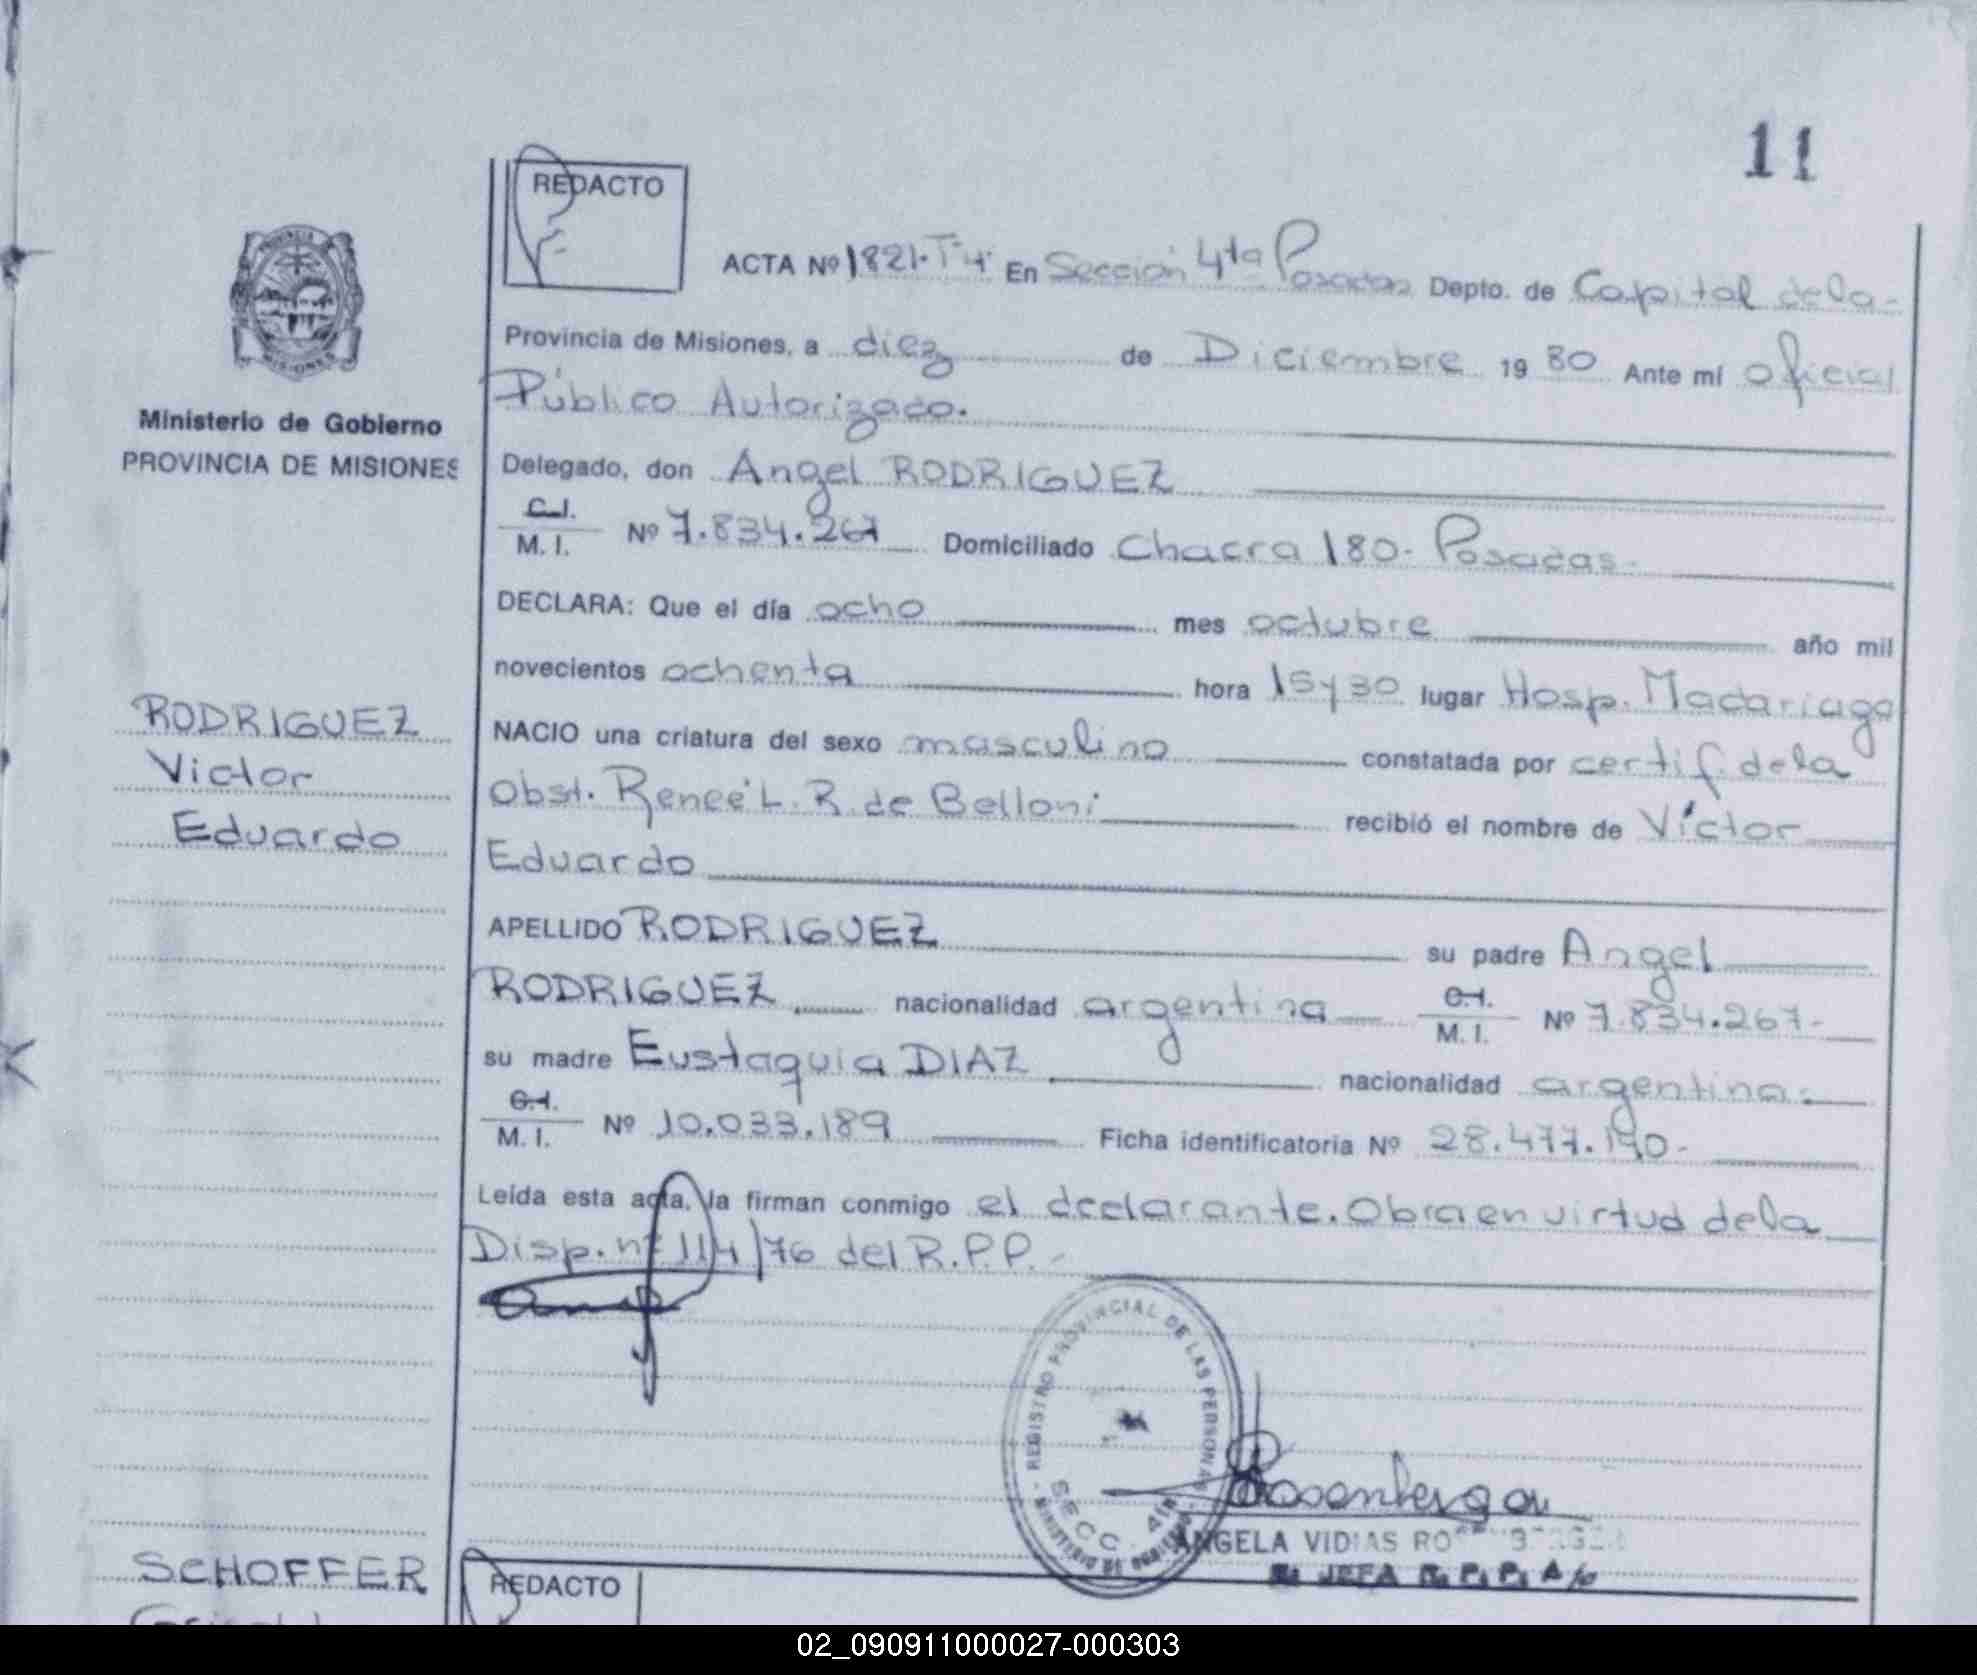 11
REDACTO
ACTA Nº 1821.Tº4. En Sección 4ta Posadas Depto. de Capital de la-
Provincia de Misiones, a diez de Diciembre 1980 Ante mí Oficial
Público Autorizado.
Ministerio de Gobierno
PROVINCIA DE MISIONES
Delegado, don Angel RODRIGUEZ
C.I.
M. I. Nº 7.834.267 Domiciliado Chacra 180- Posadas-
DECLARA: Que el día ocho mes octubre año mil
novecientos ochenta hora 15y30 lugar Hosp. Madariaga
RODRIGUEZ
Victor
Eduardo
NACIO una criatura del sexo masculino constatada por certif. de la
Obst. Reneé L. R. de Belloni recibió el nombre de Víctor
Eduardo
APELLIDO RODRIGUEZ su padre Angel
RODRIGUEZ nacionalidad argentina C.I.
M. I. Nº 7.834.267-
su madre Eustaquia DIAZ nacionalidad argentina.
C.I.
M. I. Nº 10.033.189 Ficha identificatoria Nº 28.477.190-
Leída esta acta, la firman conmigo el declarante. Obra en virtud de la
Disp. nº 114/76 del R.P.P.-
REGISTRO PROVINCIAL DE LAS PERSONAS
SECC. 4ta
ANGELA VIDIAS
JEFA R.P.P. A/c
SCHOFFER
REDACTO
02_090911000027-000303